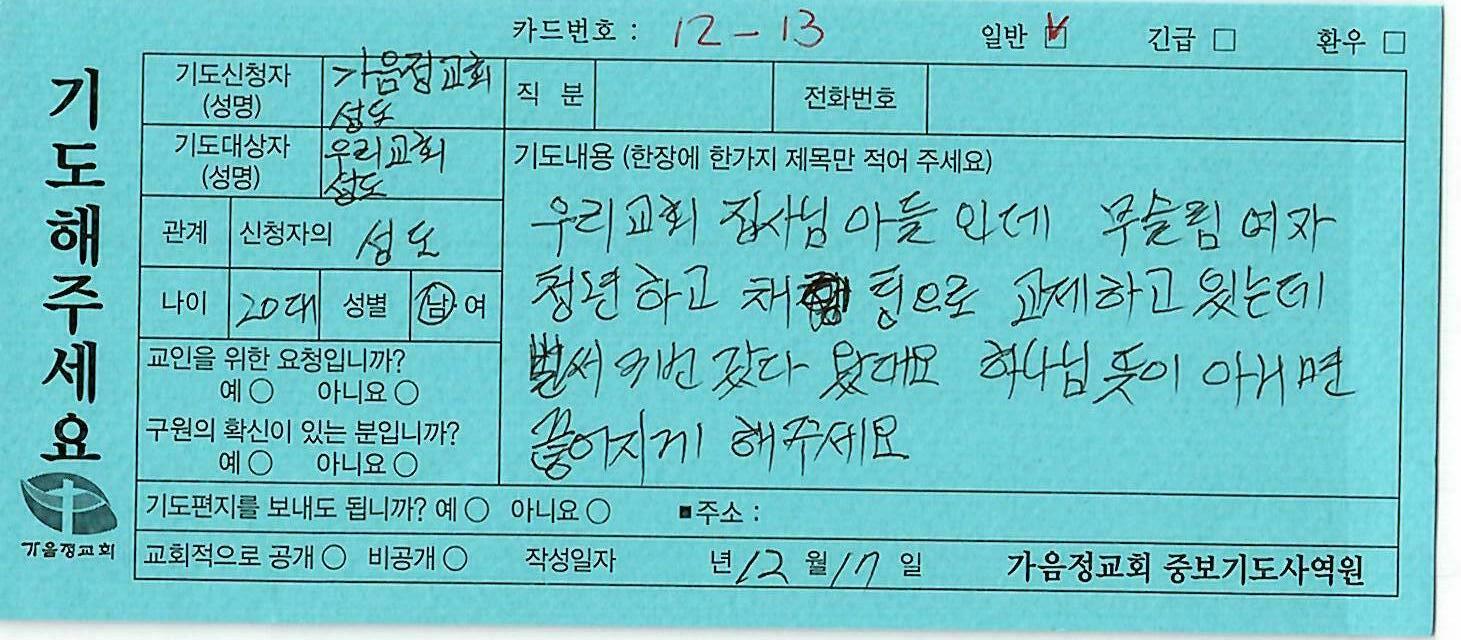 카드번호 : 12 - 13 일반 ☑ 긴급 □ 환우 □
기도해주세요
가음정교회
기도신청자 (성명) 가음정교회 성도 직 분 전화번호
기도대상자 (성명) 우리교회 성도
관계 신청자의 성도
나이 20대 성별 남·여
교인을 위한 요청입니까?
예 ○ 아니요 ○
구원의 확신이 있는 분입니까?
예 ○ 아니요 ○
기도내용 (한장에 한가지 제목만 적어 주세요)
우리교회 집사님 아들 인데 무슬림 여자
청년하고 채팅으로 교제하고 있는데
벌써 갔다 왔대요 하나님 뜻이 아니면
끊어지게 해주세요
기도편지를 보내도 됩니까? 예 ○ 아니요 ○ ■주소 :
교회적으로 공개 ○ 비공개 ○ 작성일자 년 12 월 17 일 가음정교회 중보기도사역원